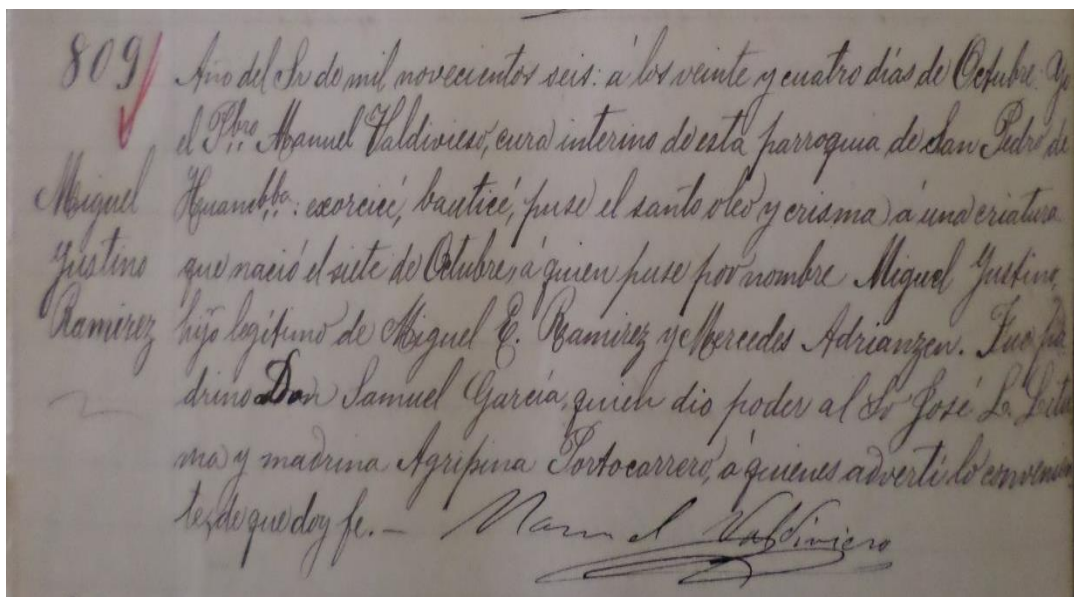 809
Miguel
Justino
Ramirez
Año del Sr de mil novecientos seis: á los veinte y cuatro días de Octubre. Yo
el Pbro Manuel Valdivieso, cura interino de esta parroquia de San Pedro de
Huambba: exorcicé, bauticé, puse el santo oleo y crisma á una criatura
que nació el siete de Octubre, á quien puse por nombre Miguel Justino,
hijo legítimo de Miguel E. Ramirez y Mercedes Adrianzen. Fue pa
drino Don Samuel García, quien dio poder al Sr José L. Litu
ma y madrina Agripina Portocarrero, á quienes advertí lo convenien
te, de que doy fe. —
Manuel Valdivieso